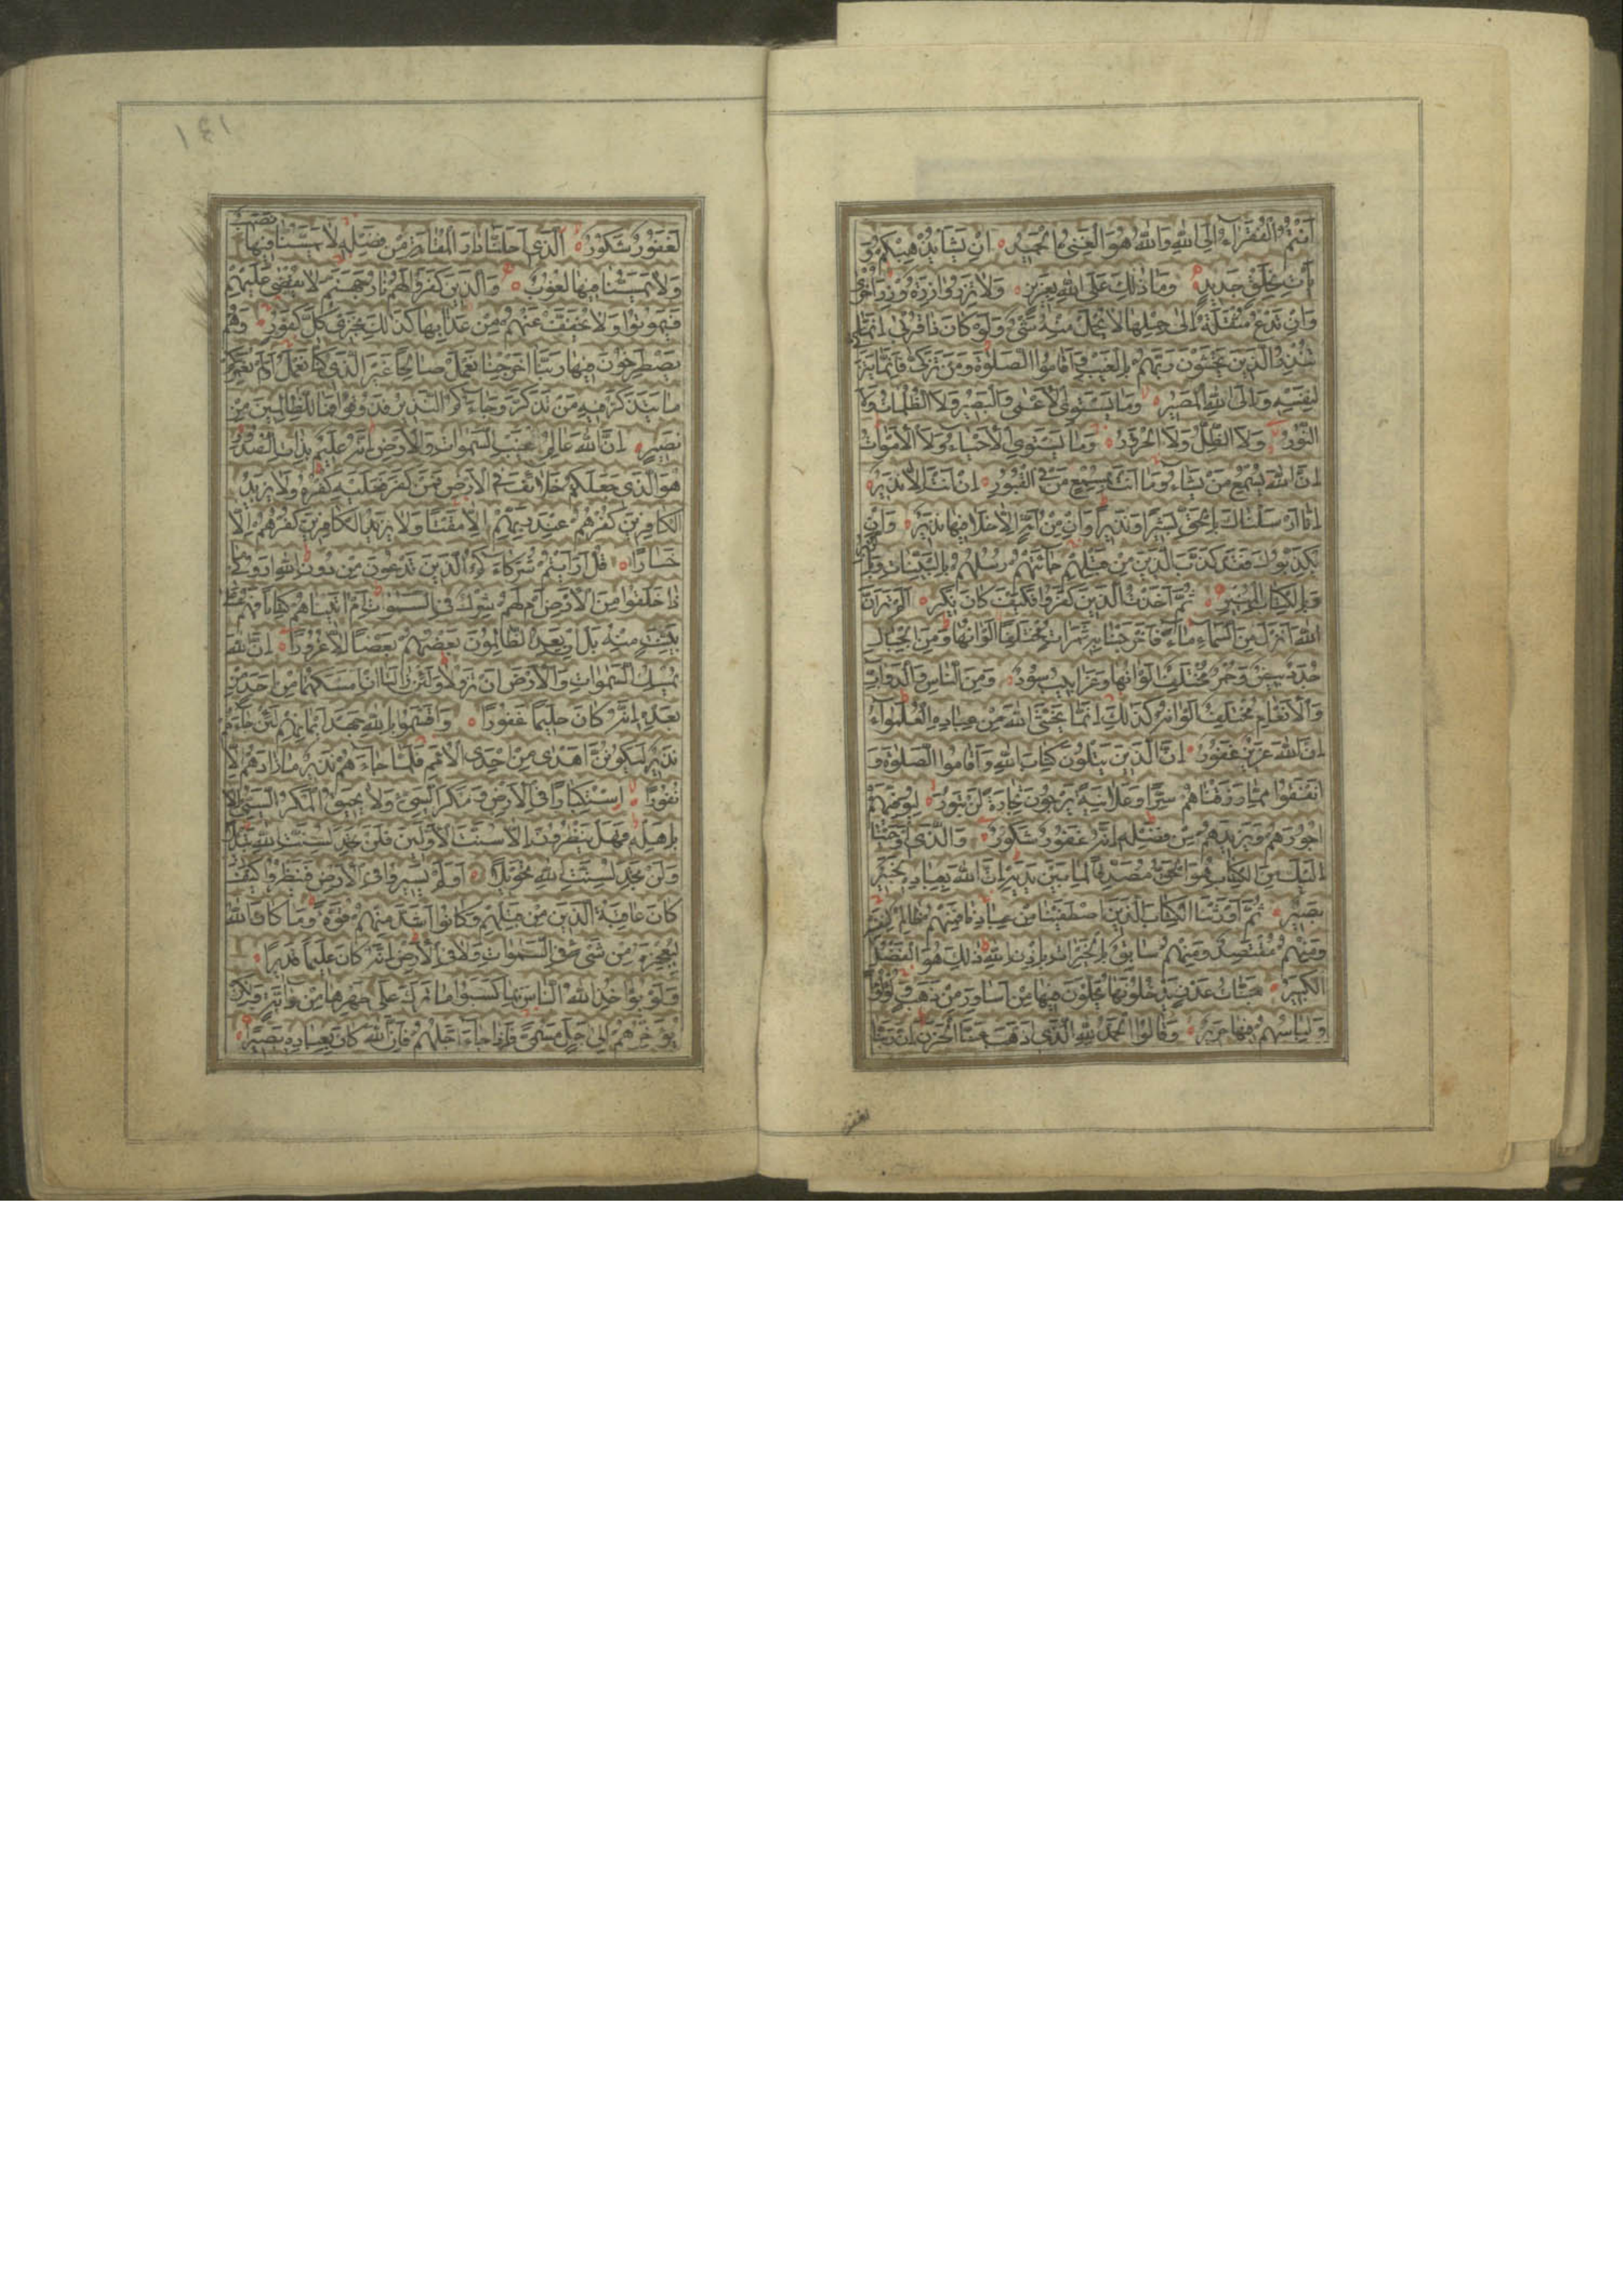 أَنْتُمُ الْفُقَرَاءُ إِلَى اللهِ وَاللهُ هُوَ الْغَنِيُّ الْحَمِيدُ إِنْ يَشَأْ يُذْهِبْكُمْ وَيَ
أْتِ بِخَلْقٍ جَدِيدٍ وَمَا ذٰلِكَ عَلَى اللهِ بِعَزِيزٍ وَلَا تَزِرُ وَازِرَةٌ وِزْرَ أُخْرٰى
وَإِنْ تَدْعُ مُثْقَلَةٌ إِلٰى حِمْلِهَا لَا يُحْمَلْ مِنْهُ شَيْءٌ وَلَوْ كَانَ ذَا قُرْبٰى إِنَّمَا
تُنْذِرُ الَّذِينَ يَخْشَوْنَ رَبَّهُمْ بِالْغَيْبِ وَأَقَامُوا الصَّلٰوةَ وَمَنْ تَزَكّٰى فَإِنَّمَا يَتَزَ
لِنَفْسِهِ وَإِلَى اللهِ الْمَصِيرُ وَمَا يَسْتَوِي الْأَعْمٰى وَالْبَصِيرُ وَلَا الظُّلُمَاتُ وَلَا
النُّورُ وَلَا الظِّلُّ وَلَا الْحَرُورُ وَمَا يَسْتَوِي الْأَحْيَاءُ وَلَا الْأَمْوَاتُ
إِنَّ اللهَ يُسْمِعُ مَنْ يَشَاءُ وَمَا أَنْتَ بِمُسْمِعٍ مَنْ فِي الْقُبُورِ إِنْ أَنْتَ إِلَّا نَذِيرٌ
إِنَّا أَرْسَلْنَاكَ بِالْحَقِّ بَشِيرًا وَنَذِيرًا وَإِنْ مِنْ أُمَّةٍ إِلَّا خَلَا فِيهَا نَذِيرٌ وَإِنْ
يُكَذِّبُوكَ فَقَدْ كَذَّبَ الَّذِينَ مِنْ قَبْلِهِمْ جَاءَتْهُمْ رُسُلُهُمْ بِالْبَيِّنَاتِ وَبِالزُّبُرِ
وَبِالْكِتَابِ الْمُنِيرِ ثُمَّ أَخَذْتُ الَّذِينَ كَفَرُوا فَكَيْفَ كَانَ نَكِيرِ أَلَمْ تَرَ أَنَّ
اللهَ أَنْزَلَ مِنَ السَّمَاءِ مَاءً فَأَخْرَجْنَا بِهِ ثَمَرَاتٍ مُخْتَلِفًا أَلْوَانُهَا وَمِنَ الْجِبَالِ
جُدَدٌ بِيضٌ وَحُمْرٌ مُخْتَلِفٌ أَلْوَانُهَا وَغَرَابِيبُ سُودٌ وَمِنَ النَّاسِ وَالدَّوَابِّ
وَالْأَنْعَامِ مُخْتَلِفٌ أَلْوَانُهُ كَذٰلِكَ إِنَّمَا يَخْشَى اللهَ مِنْ عِبَادِهِ الْعُلَمٰؤُا
إِنَّ اللهَ عَزِيزٌ غَفُورٌ إِنَّ الَّذِينَ يَتْلُونَ كِتَابَ اللهِ وَأَقَامُوا الصَّلٰوةَ وَ
أَنْفَقُوا مِمَّا رَزَقْنَاهُمْ سِرًّا وَعَلَانِيَةً يَرْجُونَ تِجَارَةً لَنْ تَبُورَ لِيُوَفِّيَهُمْ
أُجُورَهُمْ وَيَزِيدَهُمْ مِنْ فَضْلِهِ إِنَّهُ غَفُورٌ شَكُورٌ وَالَّذِي أَوْحَيْنَا
إِلَيْكَ مِنَ الْكِتَابِ هُوَ الْحَقُّ مُصَدِّقًا لِمَا بَيْنَ يَدَيْهِ إِنَّ اللهَ بِعِبَادِهِ لَخَبِيرٌ
بَصِيرٌ ثُمَّ أَوْرَثْنَا الْكِتَابَ الَّذِينَ اصْطَفَيْنَا مِنْ عِبَادِنَا فَمِنْهُمْ ظَالِمٌ لِنَفْسِهِ
وَمِنْهُمْ مُقْتَصِدٌ وَمِنْهُمْ سَابِقٌ بِالْخَيْرَاتِ بِإِذْنِ اللهِ ذٰلِكَ هُوَ الْفَضْلُ
الْكَبِيرُ جَنَّاتُ عَدْنٍ يَدْخُلُونَهَا يُحَلَّوْنَ فِيهَا مِنْ أَسَاوِرَ مِنْ ذَهَبٍ وَلُؤْلُؤًا
وَلِبَاسُهُمْ فِيهَا حَرِيرٌ وَقَالُوا الْحَمْدُ لِلّٰهِ الَّذِي أَذْهَبَ عَنَّا الْحَزَنَ إِنَّ رَبَّنَا
لغفور
١٤١
لَغَفُورٌ شَكُورٌ الَّذِي أَحَلَّنَا دَارَ الْمُقَامَةِ مِنْ فَضْلِهِ لَا يَمَسُّنَا فِيهَا نَصَبٌ
وَلَا يَمَسُّنَا فِيهَا لُغُوبٌ وَالَّذِينَ كَفَرُوا لَهُمْ نَارُ جَهَنَّمَ لَا يُقْضٰى عَلَيْهِمْ
فَيَمُوتُوا وَلَا يُخَفَّفُ عَنْهُمْ مِنْ عَذَابِهَا كَذٰلِكَ نَجْزِي كُلَّ كَفُورٍ وَهُمْ
يَصْطَرِخُونَ فِيهَا رَبَّنَا أَخْرِجْنَا نَعْمَلْ صَالِحًا غَيْرَ الَّذِي كُنَّا نَعْمَلُ أَوَلَمْ نُعَمِّرْكُمْ
مَا يَتَذَكَّرُ فِيهِ مَنْ تَذَكَّرَ وَجَاءَكُمُ النَّذِيرُ فَذُوقُوا فَمَا لِلظَّالِمِينَ مِنْ
نَصِيرٍ إِنَّ اللهَ عَالِمُ غَيْبِ السَّمٰوَاتِ وَالْأَرْضِ إِنَّهُ عَلِيمٌ بِذَاتِ الصُّدُورِ
هُوَ الَّذِي جَعَلَكُمْ خَلَائِفَ فِي الْأَرْضِ فَمَنْ كَفَرَ فَعَلَيْهِ كُفْرُهُ وَلَا يَزِيدُ
الْكَافِرِينَ كُفْرُهُمْ عِنْدَ رَبِّهِمْ إِلَّا مَقْتًا وَلَا يَزِيدُ الْكَافِرِينَ كُفْرُهُمْ إِلَّا
خَسَارًا قُلْ أَرَأَيْتُمْ شُرَكَاءَكُمُ الَّذِينَ تَدْعُونَ مِنْ دُونِ اللهِ أَرُونِي مَا
ذَا خَلَقُوا مِنَ الْأَرْضِ أَمْ لَهُمْ شِرْكٌ فِي السَّمٰوَاتِ أَمْ آتَيْنَاهُمْ كِتَابًا فَهُمْ عَلٰى
بَيِّنَتٍ مِنْهُ بَلْ إِنْ يَعِدُ الظَّالِمُونَ بَعْضُهُمْ بَعْضًا إِلَّا غُرُورًا إِنَّ اللهَ
يُمْسِكُ السَّمٰوَاتِ وَالْأَرْضَ أَنْ تَزُولَا وَلَئِنْ زَالَتَا إِنْ أَمْسَكَهُمَا مِنْ أَحَدٍ مِنْ
بَعْدِهِ إِنَّهُ كَانَ حَلِيمًا غَفُورًا وَأَقْسَمُوا بِاللهِ جَهْدَ أَيْمَانِهِمْ لَئِنْ جَاءَهُمْ
نَذِيرٌ لَيَكُونُنَّ أَهْدٰى مِنْ إِحْدَى الْأُمَمِ فَلَمَّا جَاءَهُمْ نَذِيرٌ مَا زَادَهُمْ إِلَّا
نُفُورًا اسْتِكْبَارًا فِي الْأَرْضِ وَمَكْرَ السَّيِّئِ وَلَا يَحِيقُ الْمَكْرُ السَّيِّئُ إِلَّا
بِأَهْلِهِ فَهَلْ يَنْظُرُونَ إِلَّا سُنَّتَ الْأَوَّلِينَ فَلَنْ تَجِدَ لِسُنَّتِ اللهِ تَبْدِيلًا
وَلَنْ تَجِدَ لِسُنَّتِ اللهِ تَحْوِيلًا أَوَلَمْ يَسِيرُوا فِي الْأَرْضِ فَيَنْظُرُوا كَيْفَ
كَانَ عَاقِبَةُ الَّذِينَ مِنْ قَبْلِهِمْ وَكَانُوا أَشَدَّ مِنْهُمْ قُوَّةً وَمَا كَانَ اللهُ
لِيُعْجِزَهُ مِنْ شَيْءٍ فِي السَّمٰوَاتِ وَلَا فِي الْأَرْضِ إِنَّهُ كَانَ عَلِيمًا قَدِيرًا
وَلَوْ يُؤَاخِذُ اللهُ النَّاسَ بِمَا كَسَبُوا مَا تَرَكَ عَلٰى ظَهْرِهَا مِنْ دَابَّةٍ وَلٰكِنْ
يُؤَخِّرُهُمْ إِلٰى أَجَلٍ مُسَمًّى فَإِذَا جَاءَ أَجَلُهُمْ فَإِنَّ اللهَ كَانَ بِعِبَادِهِ بَصِيرًا